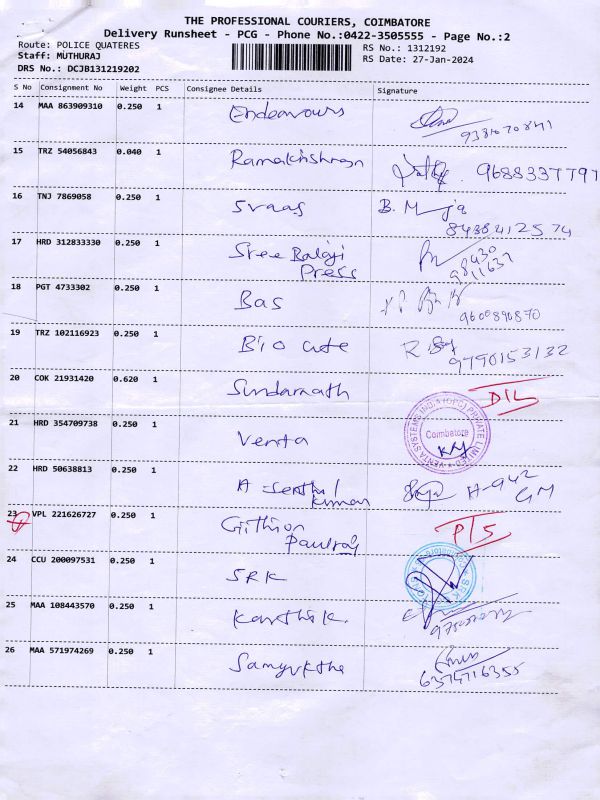 THE PROFESSIONAL COURIERS, COIMBATORE
Delivery Runsheet - PCG - Phone No.:0422-3505555 - Page No.:2
Route: POLICE QUATERES
RS No.: 1312192
Staff: MUTHURAJ
RS Date: 27-Jan-2024
DRS No.: DCJB131219202
S No Consignment No Weight PCS Consignee Details Signature
14 MAA 863909310 0.250 1 Endeavours
15 TRZ 54056843 0.040 1 Ramakrishnan 9688337797
16 TNJ 7869058 0.250 1 Svaas B. M
8438412574
17 HRD 312833330 0.250 1 Sree Balaji
Press
98430
11637
18 PGT 4733302 0.250 1 Bas
9600890870
19 TRZ 102116923 0.250 1 Bio cute R
9790153132
20 COK 21931420 0.620 1 Sundarnath D/L
21 HRD 354709738 0.250 1 Venta
VENTA SYSTEMS IND (OPC) PRIVATE LIMITED
Coimbatore
22 HRD 50638813 0.250 1 A Senthil
Kumar
A-942
GM
23 VPL 221626727 0.250 1
Paulraj
P/S
24 CCU 200097531 0.250 1 SRK
25 MAA 108443570 0.250 1 Karthik.
26 MAA 571974269 0.250 1 Samyuktha
6374716355